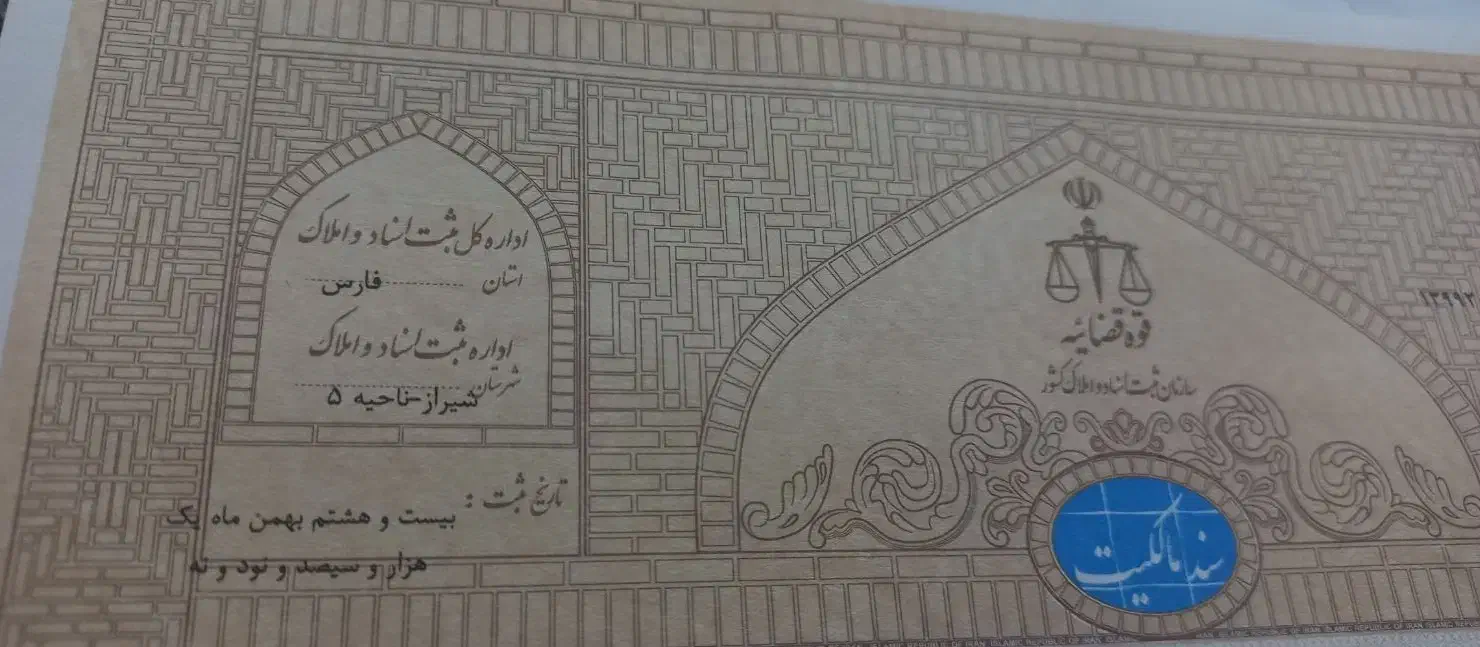 قوه قضائیه
سازمان ثبت اسناد و املاک کشور
سند مالکیت
اداره کل ثبت اسناد و املاک
استان فارس
اداره ثبت اسناد و املاک
شهرستان شیراز-ناحیه ۵
تاریخ ثبت : بیست و هشتم بهمن ماه یک
هزار و سیصد و نود و نه
ISLAMIC REPUBLIC OF IRAN ISLAMIC REPUBLIC OF IRAN